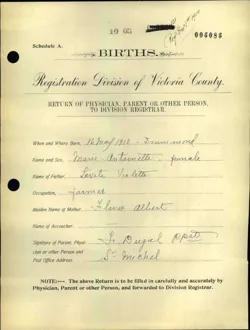 19 05
006086
Schedule A.
BIRTHS.
Registration Division of Victoria County.
RETURN OF PHYSICIAN, PARENT OR OTHER PERSON,
TO DIVISION REGISTRAR.
When and Where Born, 16 May 1910 - Drummond
Name and Sex, Marie Antoinette - female
Name of Father, Levite Violette
Occupation, farmer
Maiden Name of Mother, Flavie Albert
Name of Accoucheur,
Signature of Parent, Physi-
cian or other Person and
Post Office Address,
J. Dugal ppst
St Michel
NOTE:—The above Return is to be filled in carefully and accurately by
Physician, Parent or other Person, and forwarded to Division Registrar.